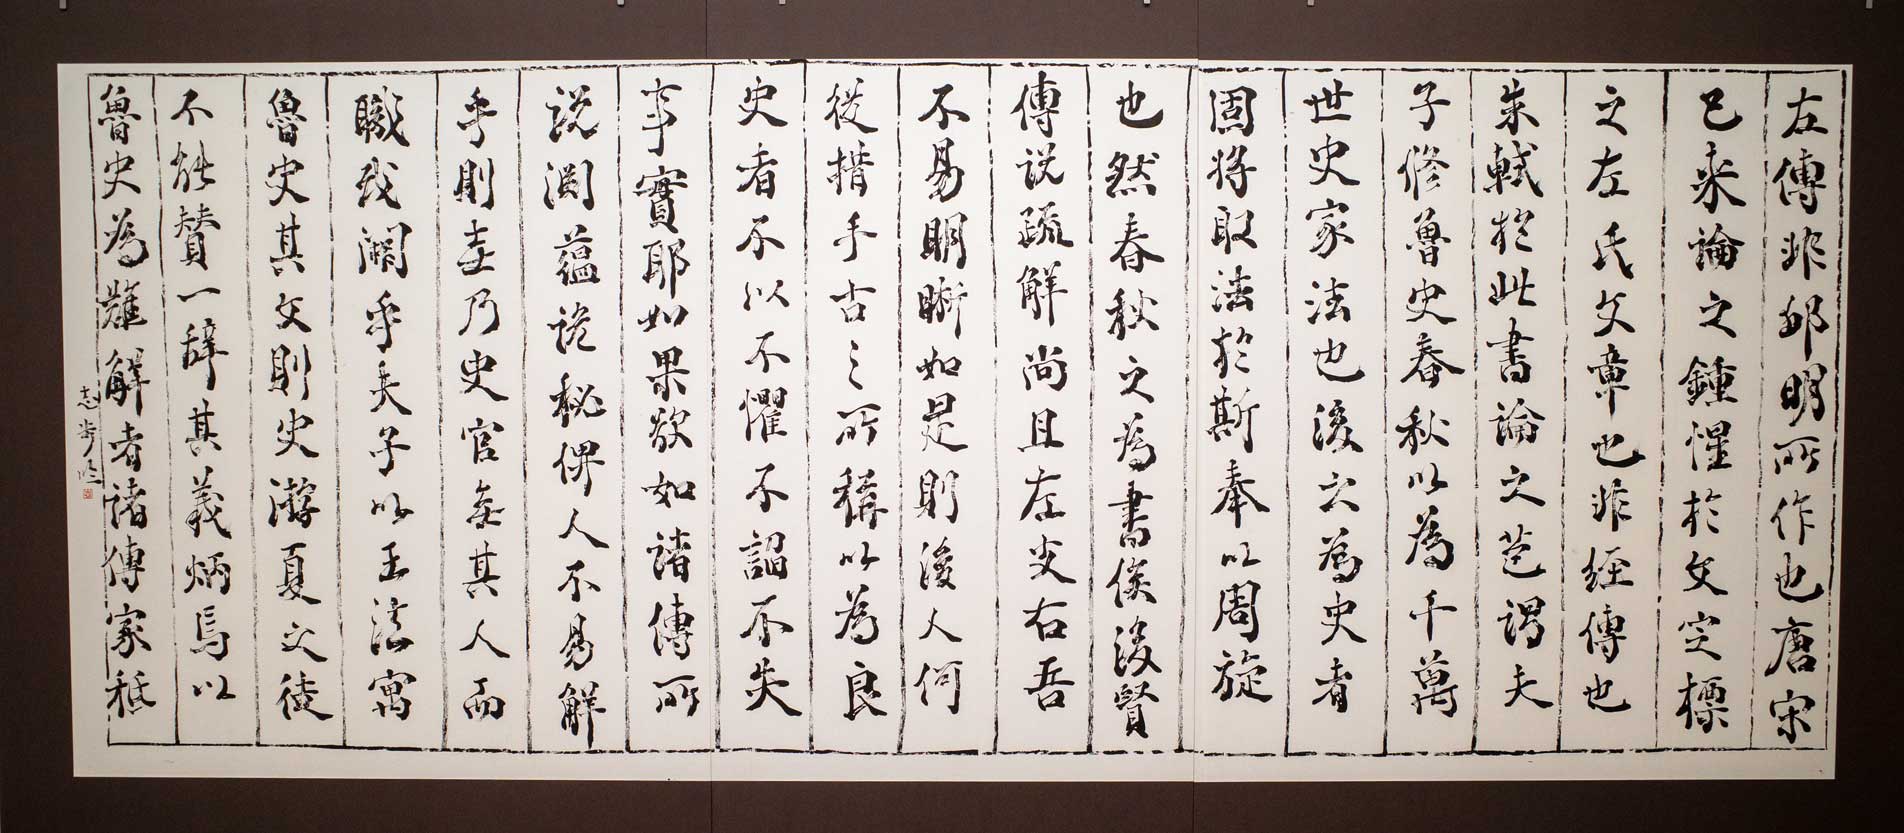 左傳非邱明所作也唐宋
已来論之鍾惺於文定標
之左氏文章也非經傳也
朱軾於此書論之謂夫
子修魯史春秋以為千萬
世史家法也後之為史者
固将取法於斯奉以周旋
也然春秋之為書俟後賢
傳说疏解尚且左支右吾
不易明晰如是則後人何
從措手古之所稱以為良
史者不以不懼不諂不失
事實耶如果欲如諸傳所
说淵蘊詭秘俾人不易解
乎則乃史官無其人而
職或闕乎夫子以王法寓
魯史其文則史游夏之徒
不能賛一辭其義炳焉以
魯史為難解者諸傳家秪